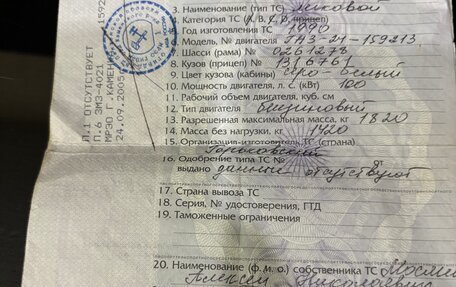 3. Наименование (тип ТС) легковой
4. Категория ТС (А, В, С, D, прицеп)
5. Год изготовления ТС 1990
6. Модель, № двигателя 159213
7. Шасси (рама) № 0261278
8. Кузов (прицеп) № 1316761
9. Цвет кузова (кабины) серо-белый
10. Мощность двигателя, л. с. (кВт) 100
11. Рабочий объем двигателя, куб. см
12. Тип двигателя бензиновый
13. Разрешенная максимальная масса, кг 1820
14. Масса без нагрузки, кг 1420
15. Организация-изготовитель ТС (страна)
Горьковский
16. Одобрение типа ТС № от
выдано данные отсутствуют
17. Страна вывоза ТС
18. Серия, № удостоверения, ГТД
19. Таможенные ограничения
20. Наименование (ф. и. о.) собственника ТС
Алексей Николаевич
Л.1 ОТСУТСТВУЕТ
П.6 ЗМЗ-4021
МРЭО КАМЕН
24.09.2005